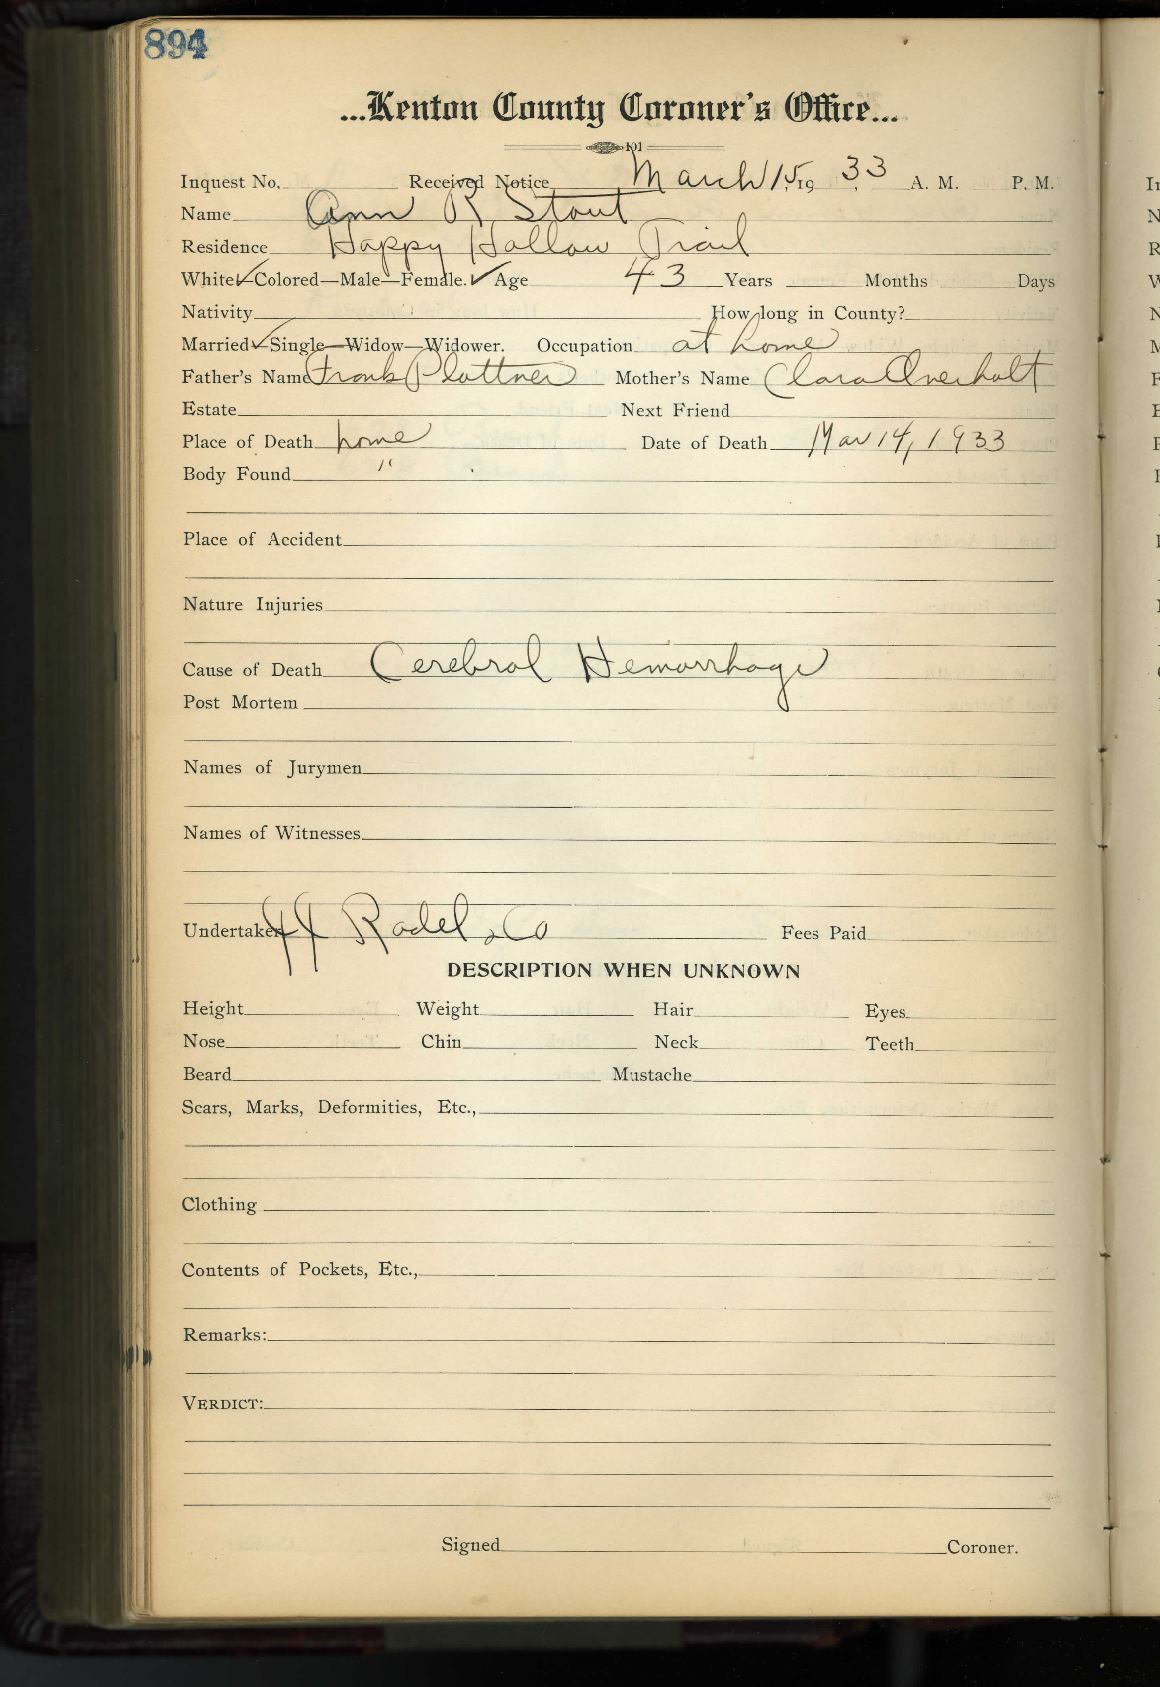 894
...Kenton County Coroner's Office...
101
Inquest No. Received Notice March 15, 19 33 A. M. P. M.
Name Ann R. Stout
Residence Happy Hollow Trail
White✓—Colored—Male—Female.✓ Age 43 Years Months Days
Nativity How long in County?
Married✓—Single—Widow—Widower. Occupation at home
Father's Name Frank Plattner Mother's Name Clara Overholt
Estate Next Friend
Place of Death home Date of Death Mar 14, 1933
Body Found "
Place of Accident
Nature Injuries
Cause of Death Cerebral Hemorrhage
Post Mortem
Names of Jurymen
Names of Witnesses
Undertaker JJ Radel & Co Fees Paid
DESCRIPTION WHEN UNKNOWN
Height Weight Hair Eyes
Nose Chin Neck Teeth
Beard Mustache
Scars, Marks, Deformities, Etc.,
Clothing
Contents of Pockets, Etc.,
Remarks:
VERDICT:
Signed Coroner.